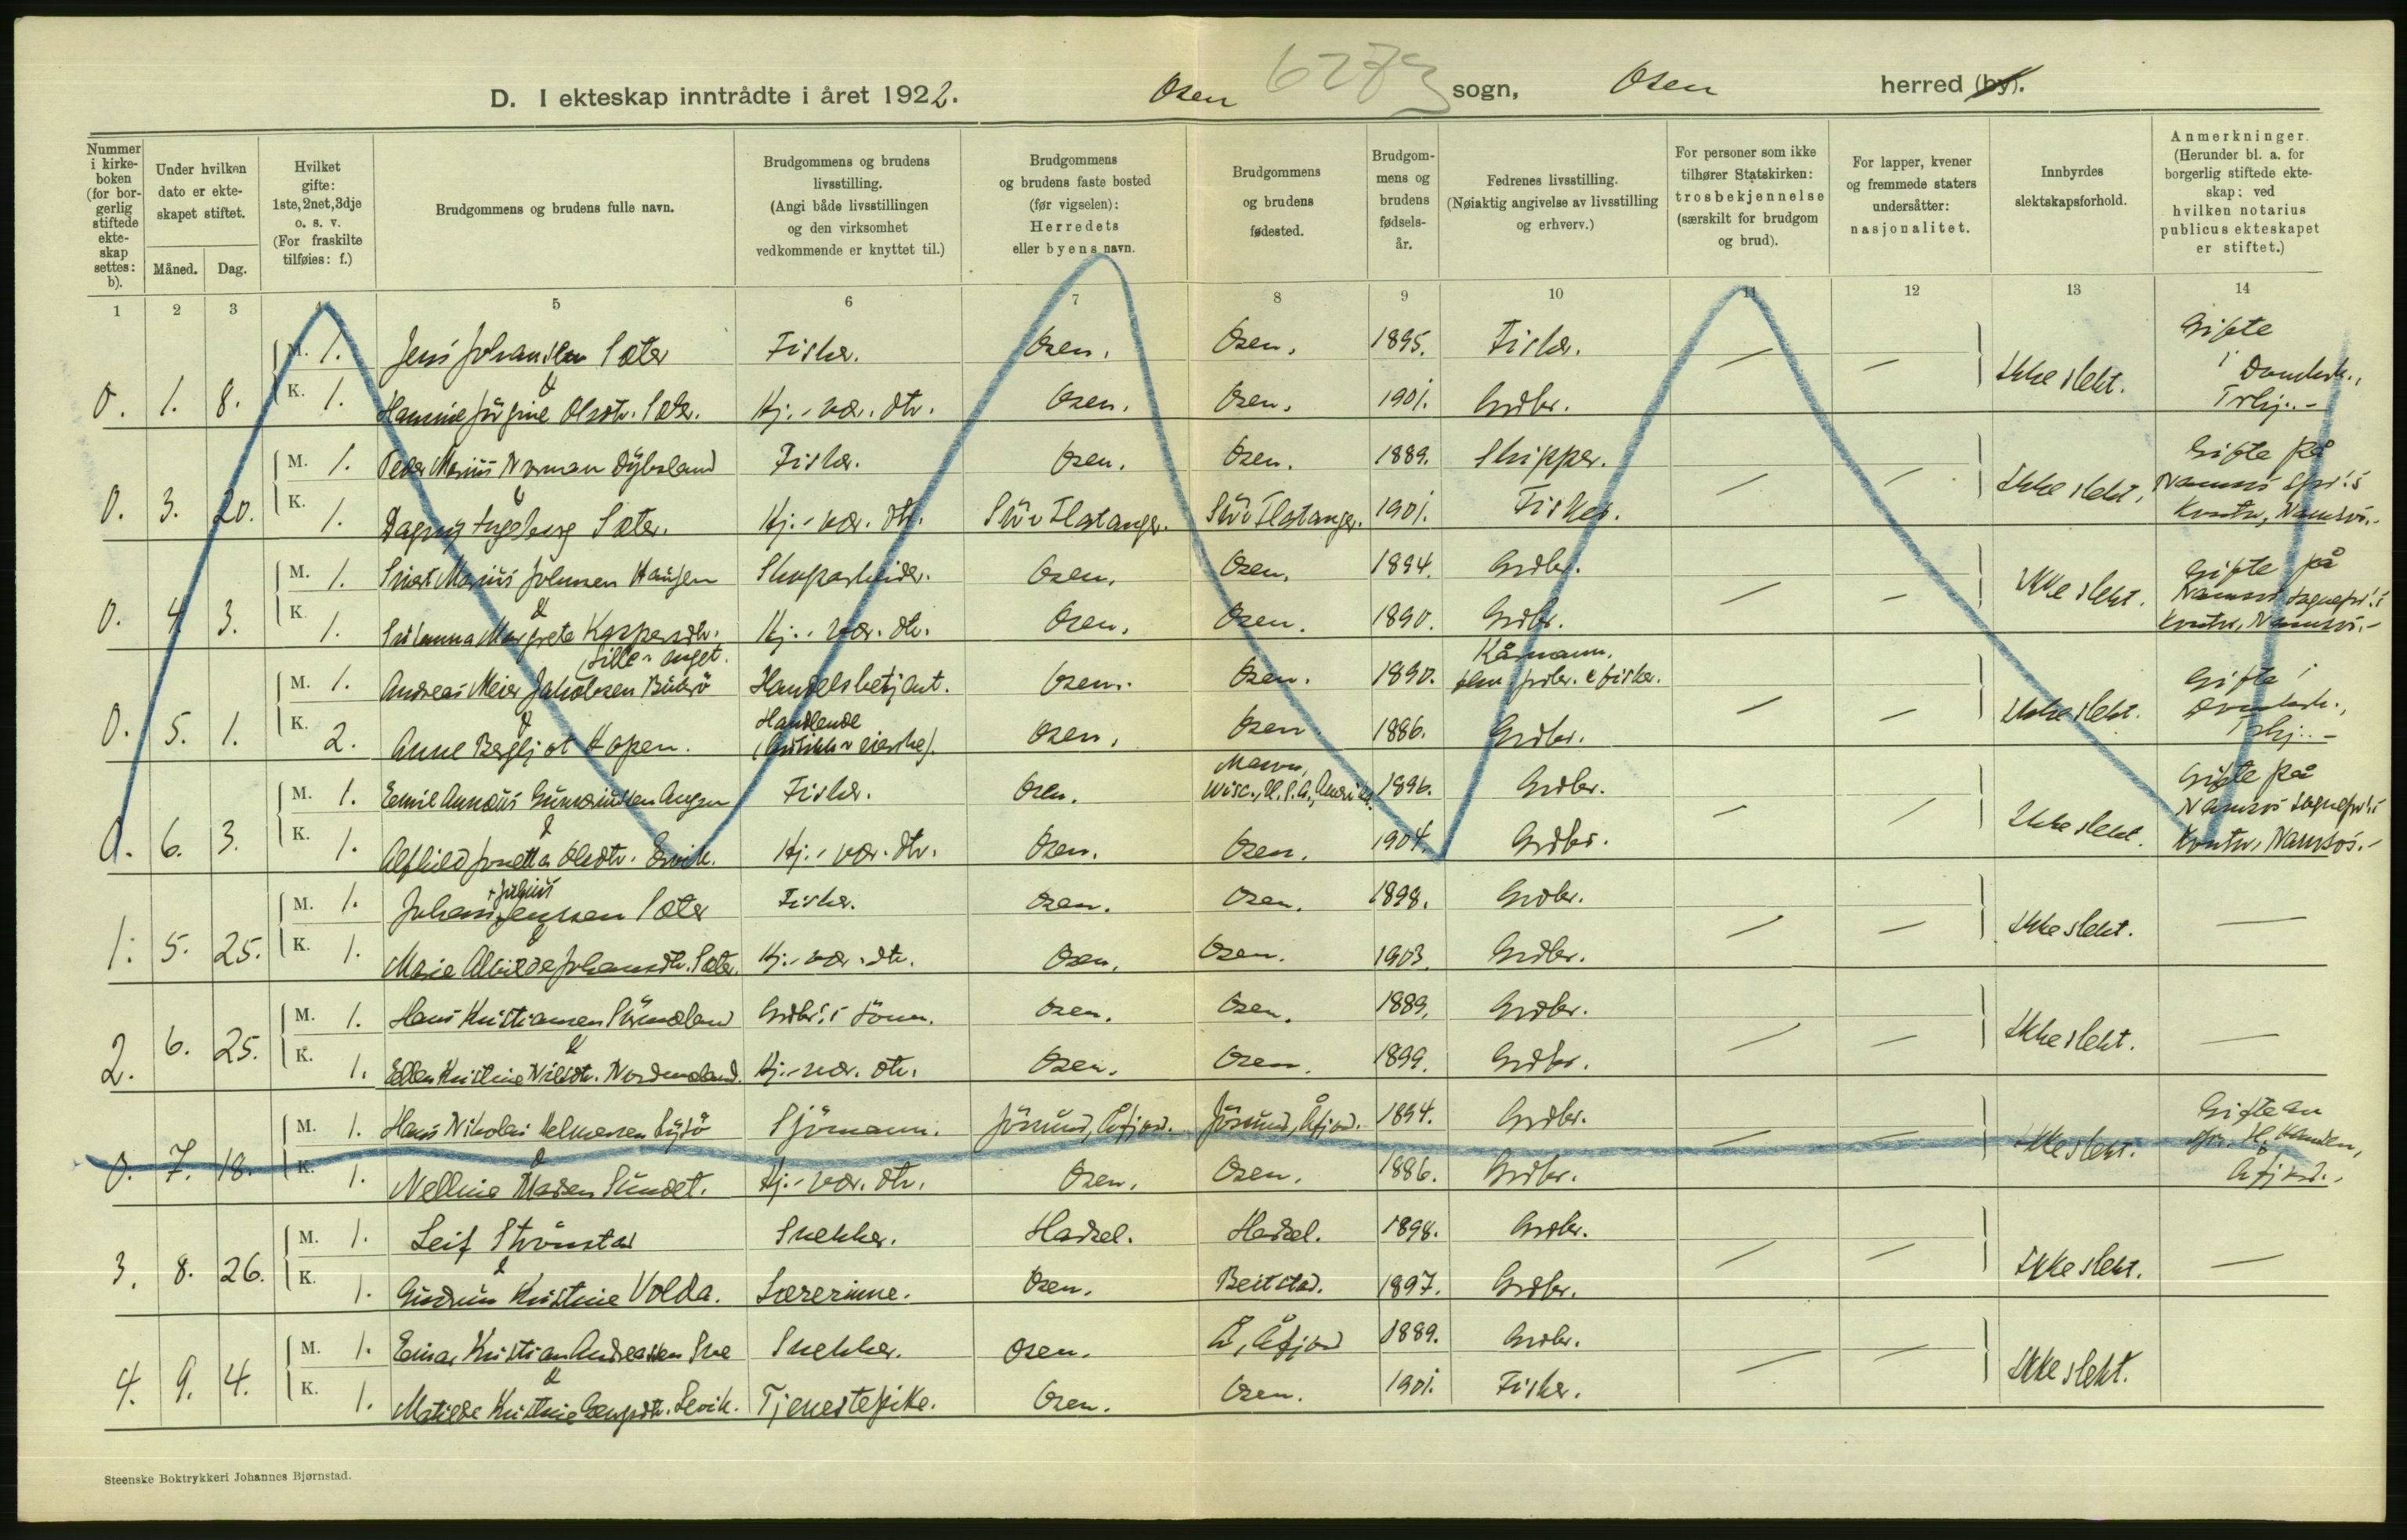 D. I ekteskap inntrådte i året 1922. Osen 6273 sogn, Osen herred (by).
Nummer i kirkeboken (for borgerlig stiftede ekteskap settes: b).
Under hvilken dato er ekteskapet stiftet.
Måned. Dag.
Hvilket gifte: 1ste, 2net, 3dje o. s. v. (For fraskilte tilføies: f.)
Brudgommens og brudens fulle navn.
Brudgommens og brudens livsstilling. (Angi både livsstillingen og den virksomhet vedkommende er knyttet til.)
Brudgommens og brudens faste bosted (før vigselen): Herredets eller byens navn.
Brudgommens og brudens fødested.
Brudgommens og brudens fødselsår.
Fedrenes livsstilling. (Nøiaktig angivelse av livsstilling og erhverv.)
For personer som ikke tilhører Statskirken: trosbekjennelse (særskilt for brudgom og brud).
For lapper, kvener og fremmede staters undersåtter: nasjonalitet.
Innbyrdes slektskapsforhold.
Anmerkninger. (Herunder bl. a. for borgerlig stiftede ekteskap: ved hvilken notarius publicus ekteskapet er stiftet.)
1 2 3 4 5 6 7 8 9 10 11 12 13 14
M. 1. Jens Johansen Sæter Fisker. Osen. Osen. 1895. Fisker. — — Gifte i
0. 1. 8. & Ikke slekt.
K. 1. Olsdtr. Sæter. Kj.-vær. dtr. Osen. Osen. 1901. Grdbr.
M. 1. Peder Marius Norman Fisker. Osen. Osen. 1889. Skipper. — — Gifte på
0. 3. 20. & Ikke slekt. Namsos
K. 1. Dagny Ingeborg Sæter. Kj.-vær. dtr. Flatanger. Flatanger. 1901. Fisker. Kontor, Namsos.-
M. 1. Marius Johnsen Hansen Osen. Osen. 1894. Grdbr. — — Gifte på
0. 4. 3. & Ikke slekt. Namsos sognepr.'s
K. 1. Susanna Margrete Kaspersdtr. Kj.-vær. dtr. Osen. Osen. 1890. Grdbr. Kontor, Namsos.-
M. 1. Andreas Meier Jakobsen Handelsbetjent. Osen. Osen. 1890. grdbr. & fisker. — — Gifte i
0. 5. 1. & Handlende Ikke slekt.
K. 2. Anne Bergljot Hopen. (Butikk-eierske). Osen. Osen. 1886. Grdbr.
M. 1. Emil Fisker. Osen. Wisc., U.S.A., Amerika. 1896. Grdbr. — — Gifte på
0. 6. 3. & Ikke slekt. Namsos sognepr.'s
K. 1. Alfhild Olsdtr. Kj.-vær. dtr. Osen. Osen. 1904. Grdbr. Kontor, Namsos.-
+ Julius
M. 1. Johan Jensen Sæter Fisker. Osen. Osen. 1898. Grdbr. — —
1. 5. 25. & Ikke slekt. —
K. 1. Marie Johansdtr. Sæter. Kj.-vær. dtr. Osen. Osen. 1903. Grdbr.
M. 1. Hans Kristiansen Grdbr.'s sönn. Osen. Osen. 1889. Grdbr. — —
2. 6. 25. & Ikke slekt. —
K. 1. Ellen Kristine Nilsdtr. Nordmeland. Kj.-vær. dtr. Osen. Osen. 1899. Grdbr.
M. 1. Hans Nikolai Helmersen Lysö Sjömann. Jösund, Åfjord. Jösund, Åfjord. 1894. Grdbr. — — Gifte av
0. 7. 18. & Ikke slekt. spr. H. Hansen,
K. 1. Nelline Maren Sundet. Kj.-vær. dtr. Osen. Osen. 1886. Grdbr. Åfjord.-
M. 1. Leif Strömstad Snekker. Hadsel. Hadsel. 1898. Grdbr. — —
3. 8. 26. & Ikke slekt. —
K. 1. Gudrun Kristine Volda. Lærerinne. Osen. Beitstad. 1897. Grdbr.
M. 1. Einar Kristian Andreassen Snekker. Osen. Å, Åfjord 1889. Grdbr. — —
4. 9. 4. & Ikke slekt.
K. 1. Matilde Kristine Tjenestepike. Osen. Osen. 1901. Fisker.
Steenske Boktrykkeri Johannes Bjørnstad.